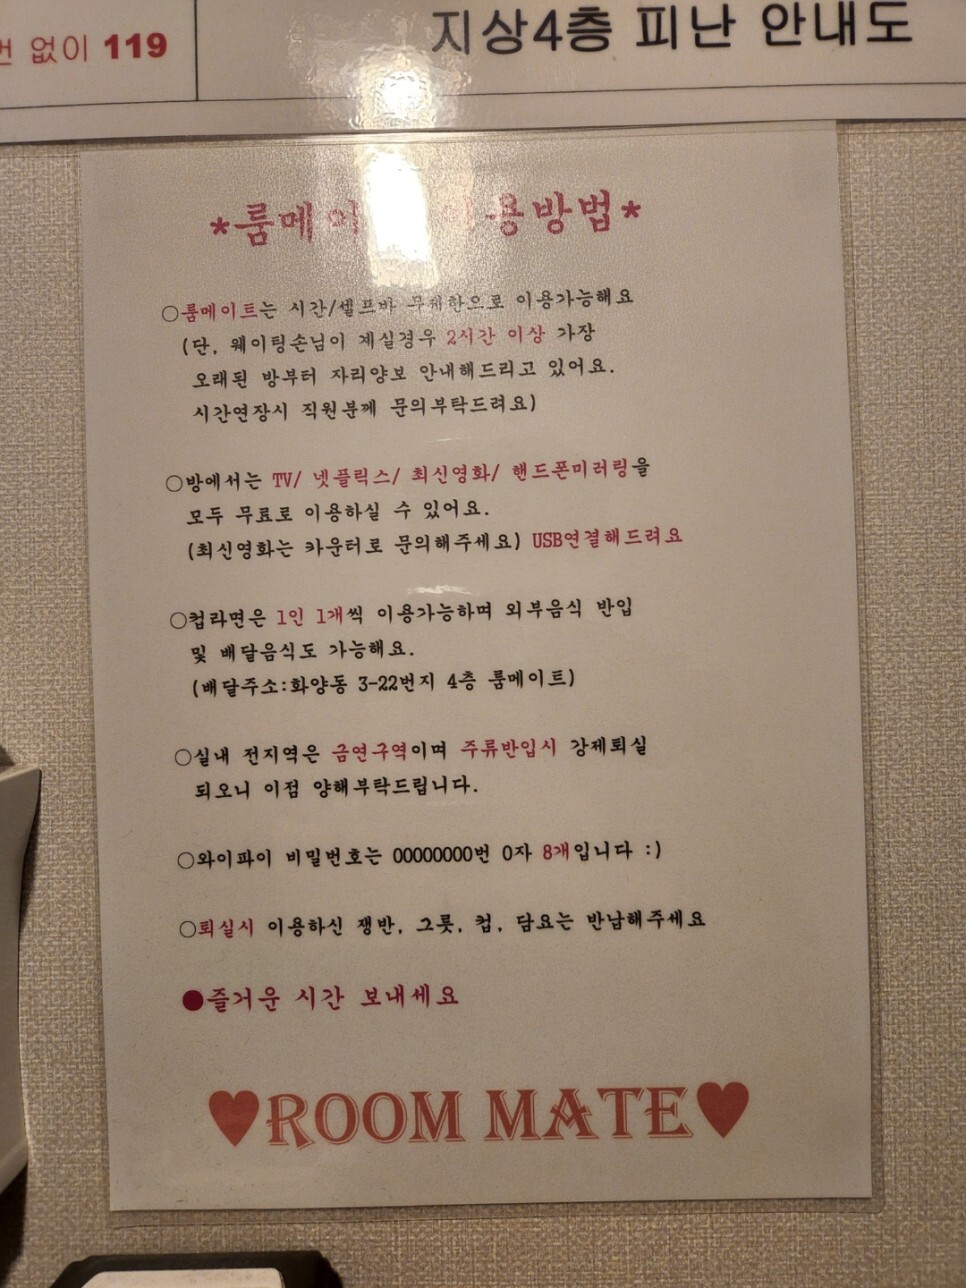 없이 119
지상4층 피난 안내도
*룸메이 이용방법*
○룸메이트는 시간/셀프바 무제한으로 이용가능해요
(단, 웨이팅손님이 계실경우 2시간 이상 가장
오래된 방부터 자리양보 안내해드리고 있어요.
시간연장시 직원분께 문의부탁드려요)
○방에서는 TV/ 넷플릭스/ 최신영화/ 핸드폰미러링을
모두 무료로 이용하실 수 있어요.
(최신영화는 카운터로 문의해주세요) USB연결해드려요
○컵라면은 1인 1개씩 이용가능하며 외부음식 반입
및 배달음식도 가능해요.
(배달주소:화양동 3-22번지 4층 룸메이트)
○실내 전지역은 금연구역이며 주류반입시 강제퇴실
되오니 이점 양해부탁드립니다.
○와이파이 비밀번호는 00000000번 0자 8개입니다 :)
○퇴실시 이용하신 쟁반, 그릇, 컵, 담요는 반납해주세요
●즐거운 시간 보내세요
♥ROOM MATE♥